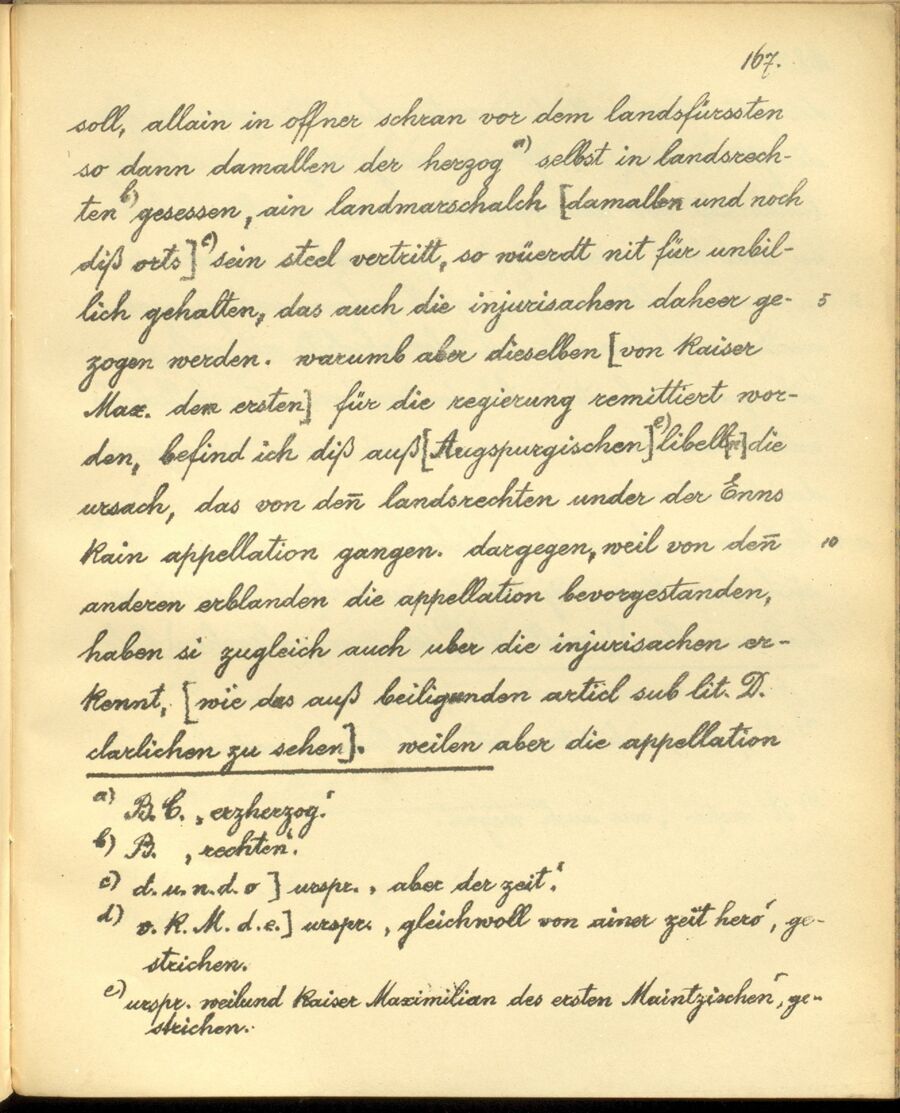 167.
soll, allain in offner schran vor dem landsfürssten
so dann damallen der herzog a) selbst in landsrech-
ten b) gesessen, ain landmarschalch [damallen und noch
diß orts] c) sein steel vertritt, so wüerdt nit für unbil-
lich gehalten, das auch die injurisachen daheer ge- 5
zogen werden. warumb aber dieselben [von kaiser
Max. dem ersten] für die regierung remittiert wor-
den, befind ich diß auß [Augspurgischen] e) libell[n] die
ursach, das von den̄ landsrechten under der Enns
kain appellation gangen. dargegen, weil von den̄ 10
anderen erblanden die appellation bevorgestanden,
haben si zugleich auch uber die injurisachen er-
kennt, [wie das auß beiligunden articl sub lit. D.
clarlichen zu sehen]. weilen aber die appellation
a) B.C. „erzherzog“.
b) B. „rechten“.
c) d. u. n. d. o ] urspr. „aber der zeit“.
d) v. k. M. d. e.] urspr. „gleichwoll von ainer zeit hero“, ge-
strichen.
e) urspr. weilund kaiser Maximilian des ersten Maintzischen“, ge-
strichen.